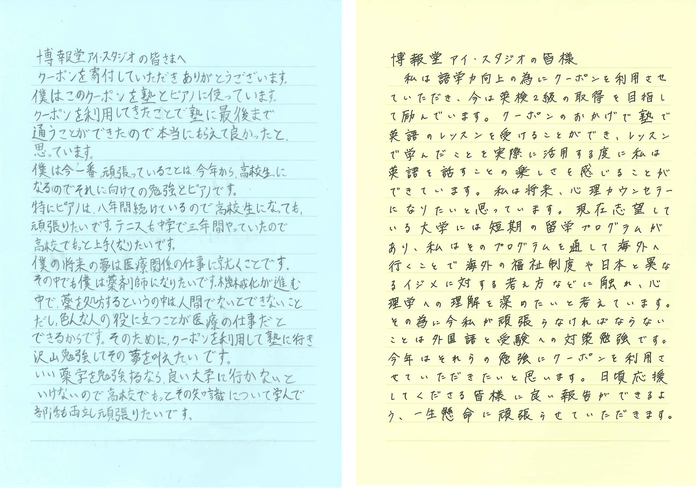 博報堂アイ・スタジオの皆さまへ
クーポンを寄付していただきありがとうございます。
僕はこのクーポンを塾とピアノに使っています。
クーポンを利用してきたことで塾に最後まで
通うことができたので本当にもらえて良かったと、
思っています。
僕は今一番頑張っていることは、今年から、高校生に
なるのでそれに向けての勉強とピアノです。
特にピアノは、八年間続けているので高校生になっても、
頑張りたいです。テニスも中学で三年間やっていたので
高校でもっと上手くなりたいです。
僕の将来の夢は医療関係の仕事に就くことです。
その中でも僕は薬剤師になりたいです。機械化が進む
中で、薬を処方するというの中は人間でないとできないこと
だし、色んな人の役に立つことが医療の仕事だと
できるからです。そのために、クーポンを利用して塾に行き
沢山勉強してその夢を叶えたいです。
いい薬学を勉強するなら、良い大学に行かないと
いけないので高校でもっとその知識について学んで
部活も両立し頑張りたいです。
博報堂アイ・スタジオの皆様
私は語学力向上の為にクーポンを利用させ
ていただき、今は英検2級の取得を目指し
て励んでいます。クーポンのおかげで塾で
英語のレッスンを受けることができ、レッスン
で学んだことを実際に活用する度に私は
英語を話すことの楽しさを感じることが
できています。私は将来、心理カウンセラー
になりたいと思っています。現在志望して
いる大学には短期の留学プログラムが
あり、私はそのプログラムを通して海外へ
行くことで海外の福祉制度や日本と異な
るイジメに対する考え方などに触れ、心
理学への理解を深めたいと考えています。
その為に今私が頑張らなければならない
ことは外国語と受験への対策勉強です。
今年はそれらの勉強にクーポンを利用さ
せていただきたいと思います。日頃応援
してくださる皆様に良い報告ができるよ
う、一生懸命に頑張らせていただきます。